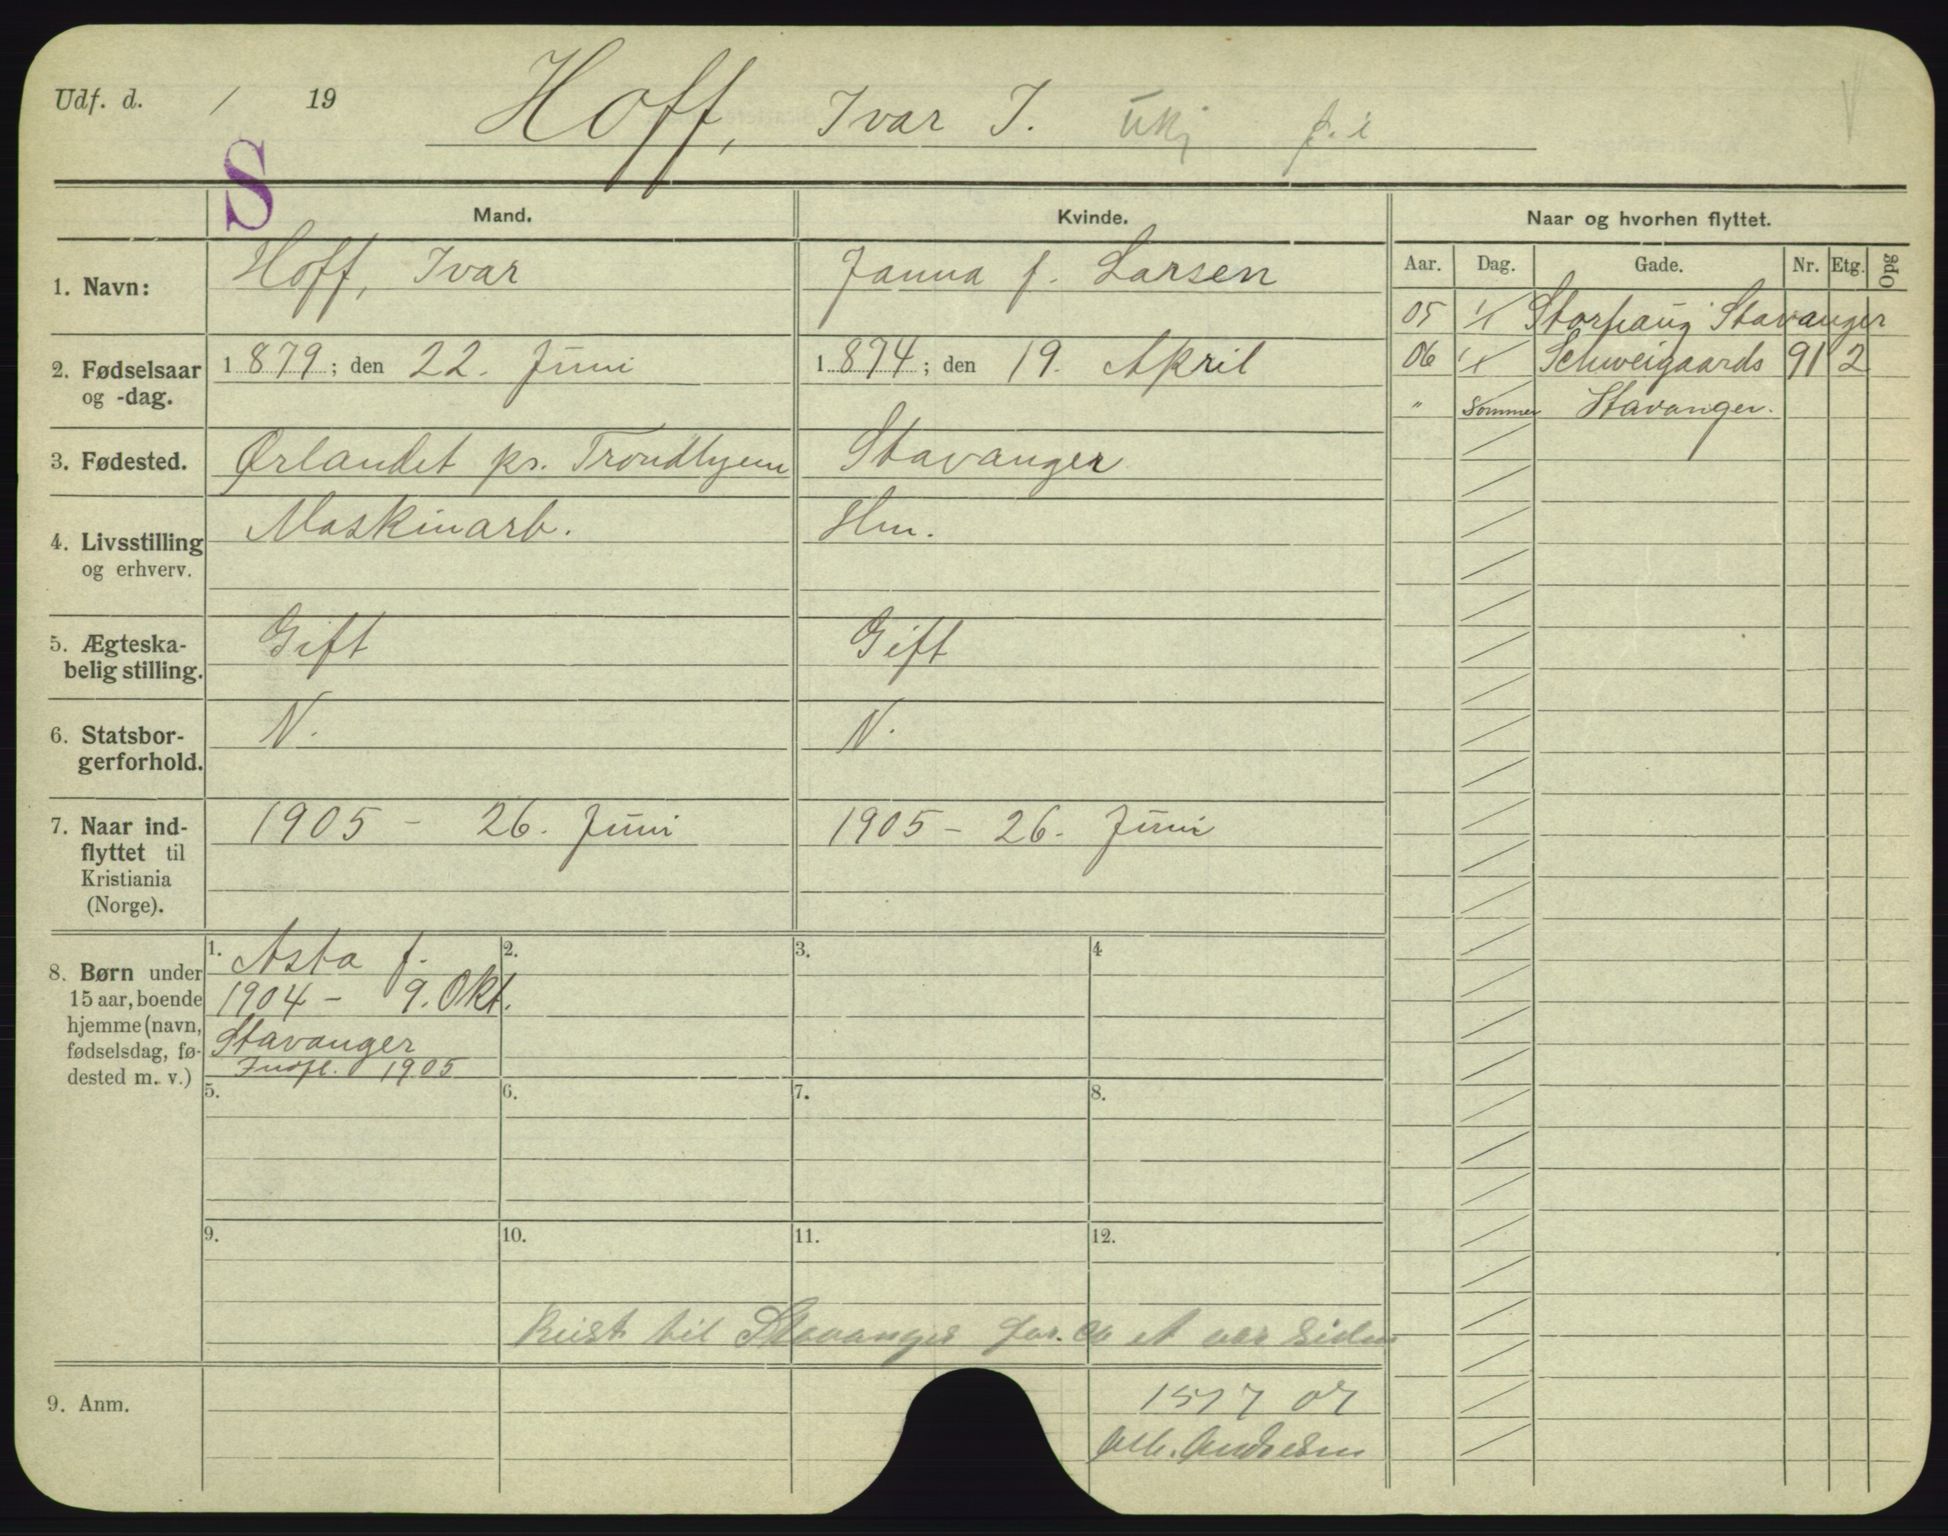 Udf. d. / 19
Hoff, Ivar I. ukj f. i
S
Mand. Kvinde. Naar og hvorhen flyttet.
Aar. Dag. Gade. Nr. Etg. Opg
1. Navn: Hoff, Ivar Janna f. Larsen
05 Storhaug Stavanger
06 Schweigaards 91 2
" Sommer Stavanger.
2. Fødselsaar og -dag. 1879; den 22. Juni 1874; den 19. April
3. Fødested. Ørlandet pr. Trondhjem Stavanger
4. Livsstilling og erhverv. Maskinarb. Hm.
5. Ægteska-
belig stilling. Gift Gift
6. Statsbor-
gerforhold. N. N.
7. Naar ind-
flyttet til
Kristiania
(Norge).
1905 - 26. Juni 1905 - 26. Juni
8. Børn under
15 aar, boende
hjemme (navn,
fødselsdag, fø-
dested m. v.)
1. Asta f.
1904 - 9. Okt.
Stavanger
Indfl. 1905
2.
3.
4
5.
6.
7.
8.
9.
10.
11.
12.
Reist til Stavanger for ca et aar siden
9. Anm.
15/7 07
Andresen